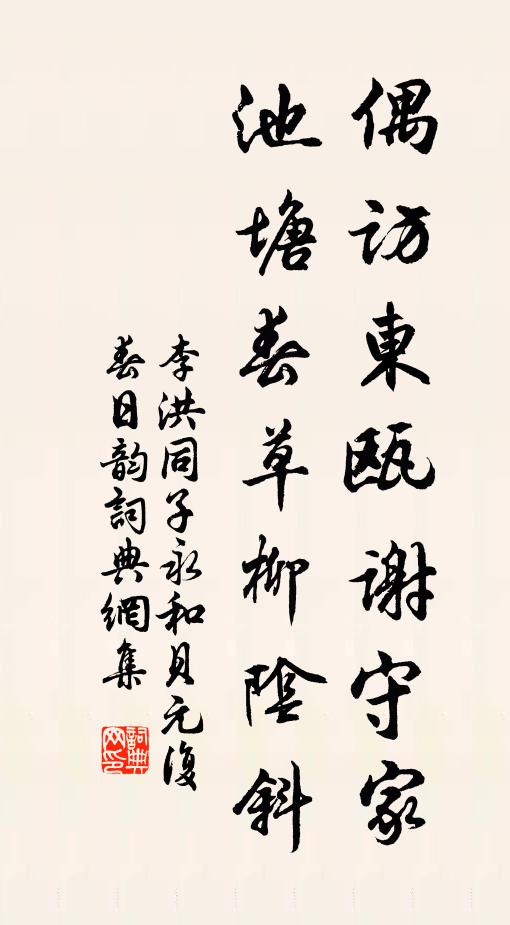 偶訪東甌謝守家
池塘春草柳陰斜
李洪同子永和貝元復
春日韵詞典網集
詞典
网印